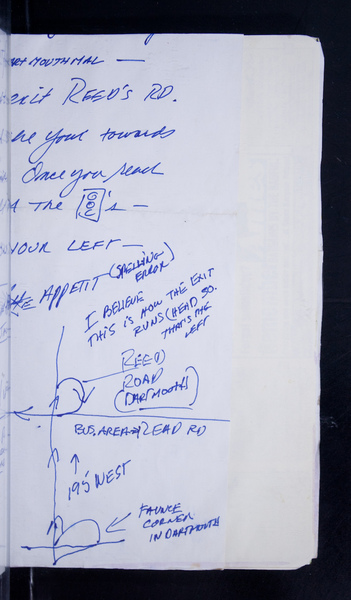 MOUTH MAL —
exit REED'S RD.
your towards
Once you reach
THE 's —
YOUR LEFT —
APPETIT (SPELLING
ERROR)
I BELIEVE
THIS IS HOW THE EXIT
RUNS (HEAD SO.
THAT'S THE
LEFT
REED
ROAD
(DARTMOUTH)
BUS. AREA → READ RD
195 WEST
FAUNCE
CORNER
IN DARTMOUTH